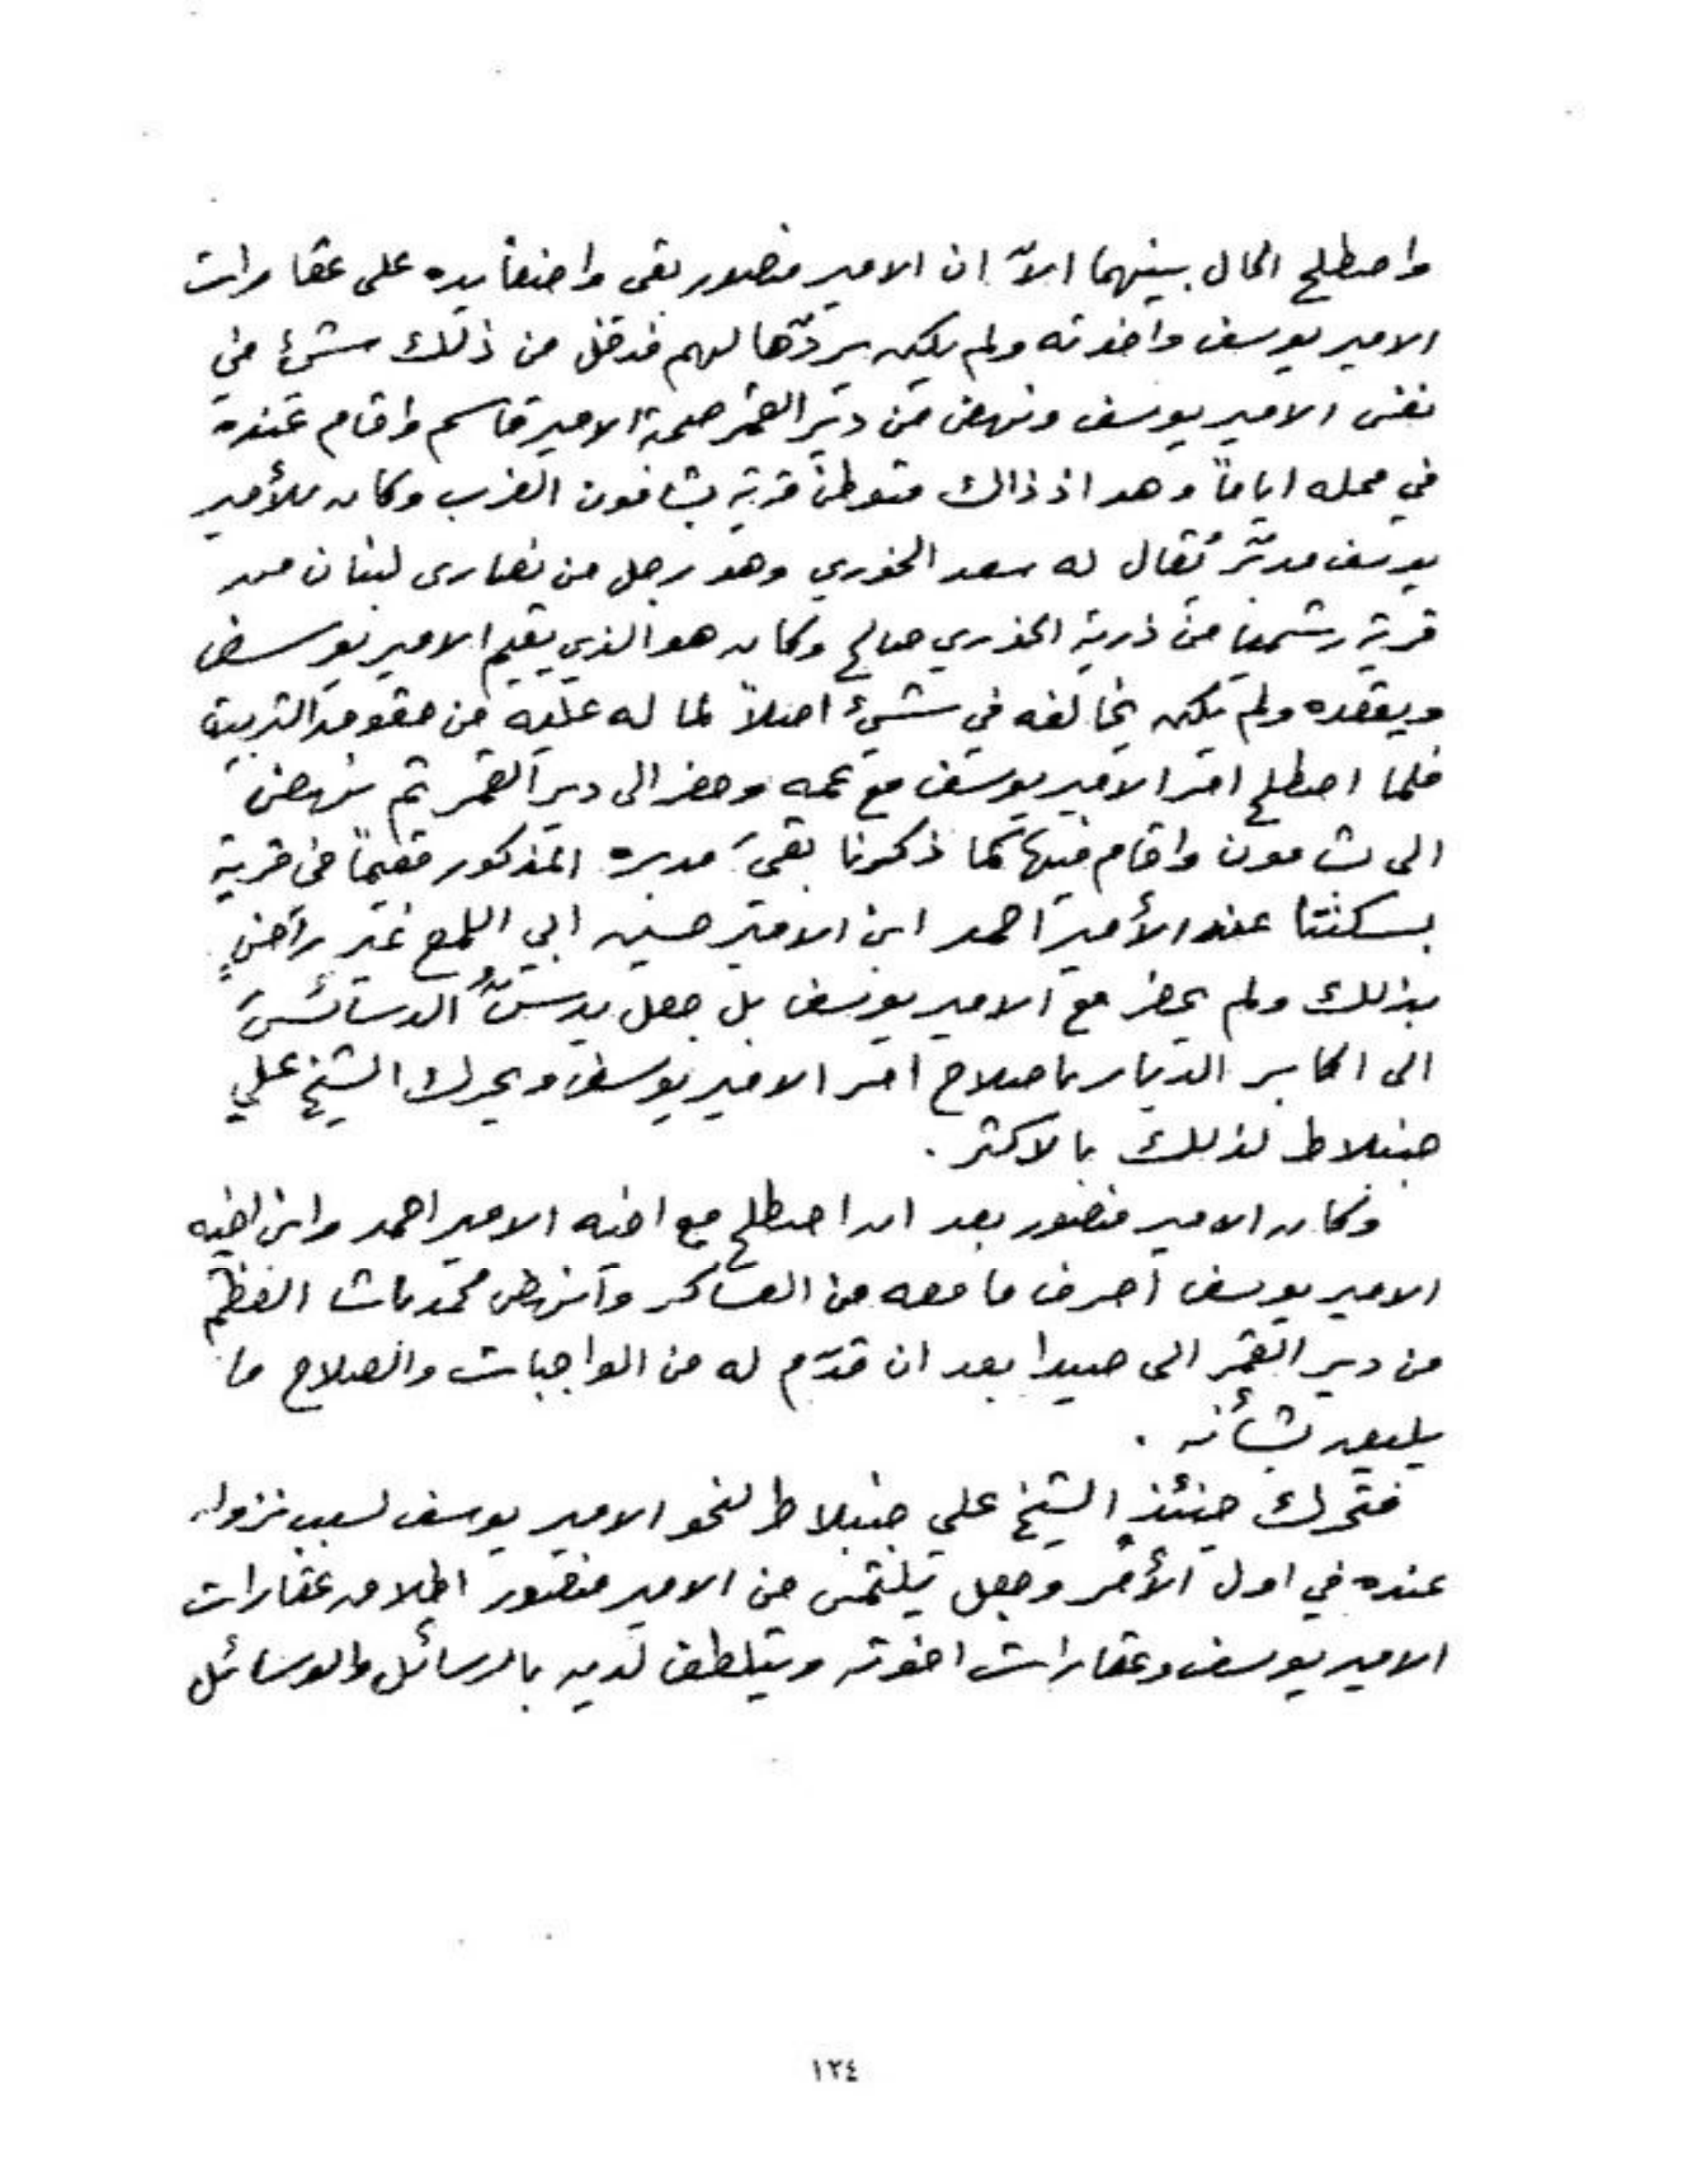 واصطلح الحال بينهما الاّ ان الامير منصور بقى واضعاً يده على عقارات
الامير يوسف واخوته ولم يكن يردّها لهم فدخل من ذلك شيٌ في
نفس الامير يوسف ونهض من دير القمر صحبة الامير قاسم واقام عنده
في محله اياماً وهو اذ ذاك متوطن قرية بشامون الغرب وكان للأمير
يوسف مدبّر يُقال له سعد الخوري وهو رجل من نصارى لبنان من
قرية رشميا من ذرية الخوري صالح وكان هو الذي يقيم الامير يوسف
ويقعده ولم يكن يخالفه في شيٌ اصلاً لما له عليه من حقوق التربية
فلما اصطلح امر الامير يوسف مع عمه وحضر الى دير القمر ثم نهض
الى بشامون واقام فيها كما ذكرنا بقى مدبره المذكور مقيماً في قرية
بسكنتا عند الأمير احمد ابن الامير حسين ابي اللمع غير راضٍ
بذلك ولم يحضر مع الامير يوسف بل جعل يدسّ الدسائس
الى اكابر الديار باصلاح امر الامير يوسف ويحرك الشيخ علي
جنبلاط لذلك بالاكثر .
وكان الامير منصور بعد ان اصطلح مع اخيه الامير احمد وابن اخيه
الامير يوسف اصرف ما معه من العساكر وانهض محمد باشا العظم
من دير القمر الى صيدا بعد ان قدّم له من الواجبات والصلاح ما
يليق بشأنه .
فتحرك حينئذٍ الشيخ علي جنبلاط لنحو الامير يوسف لسبب نزوله
عنده في اول الأمر وجعل يلتمس من الامير منصور اطلاق عقارات
الامير يوسف وعقارات اخوته ويتلطف لديه بالرسائل والوسائل
١٢٤